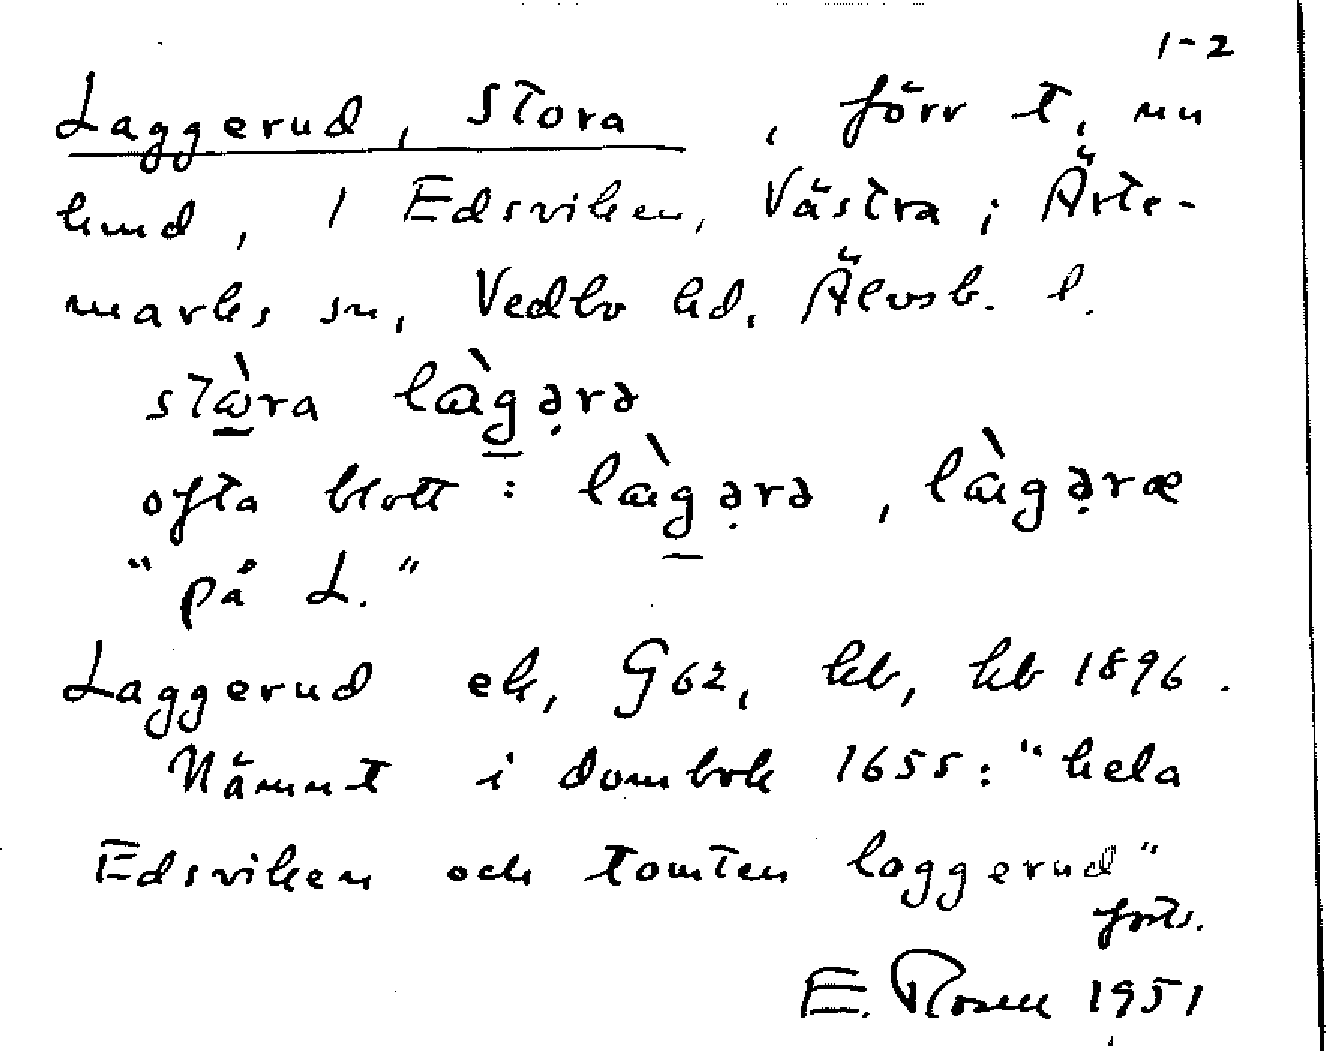 1-2
Laggerud, Stora, förr t, nu
hmd, / Edsviken, Västra i Ärte-
marks sn, Vedbo hd, Älvsb. l.
stàra làgərə
ofta blott: làgərə, làgəræ
"på L."
Laggerud ek, G62, kb, hb 1896.
Nämnt i dombok 1655: "hela
Edsviken och tomten laggerud"
forts.
E. Rosell 1951